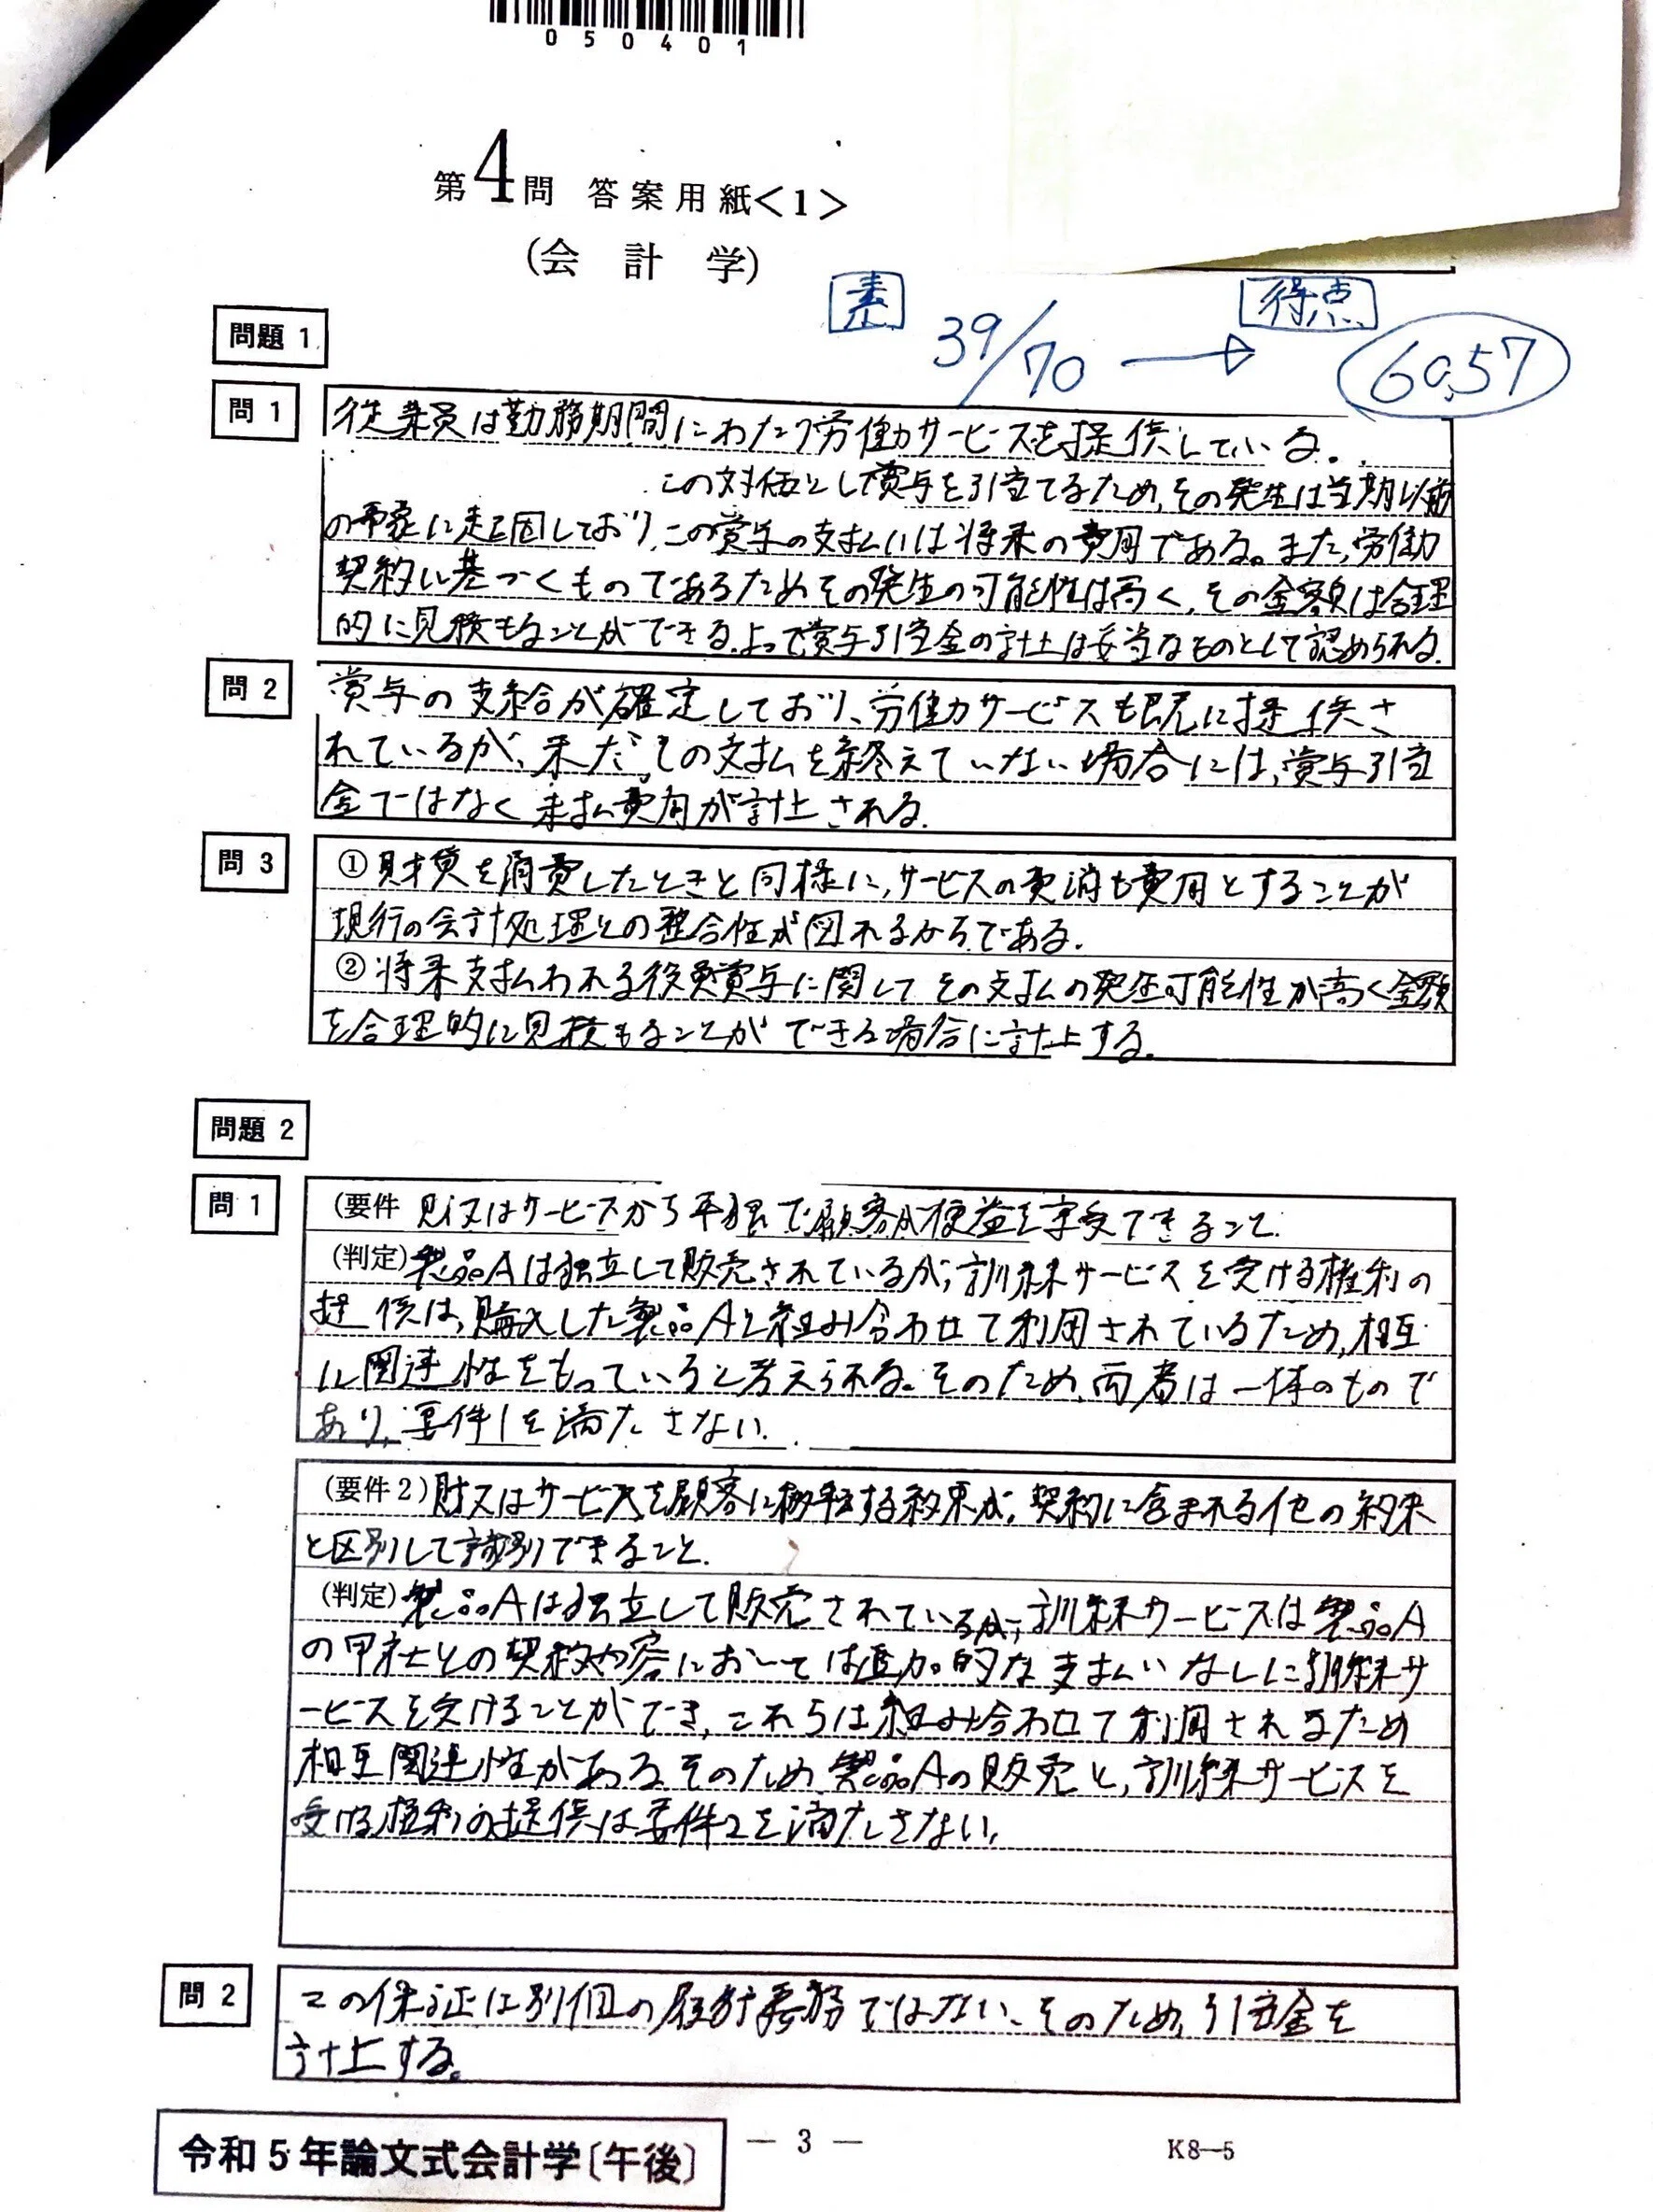 050401
第4問 答案用紙<1>
(会計学)
素 39/70 → 得点 60.57
問題 1
問 1
従業員は勤務期間にわたり労働サービスを提供している。
この対価として賞与を引当てるため、その発生は当期以前
の事象に起因しており、この賞与の支払いは将来の費用である。また、労働
契約に基づくものであるためその発生の可能性は高く、その金額は合理
的に見積もることができる。よって賞与引当金の計上は妥当なものとして認められる。
問 2
賞与の支給が確定しており、労働サービスも既に提供さ
れているが、未だその支払を終えていない場合には、賞与引当
金ではなく未払費用が計上される。
問 3
①財貨を消費したときと同様に、サービスの費消も費用とすることが
現行の会計処理との整合性が図れるからである。
②将来支払われる役員賞与に関してその支払の発生可能性が高く金額
を合理的に見積もることができる場合に計上する。
問題 2
問 1
(要件 財又はサービスから単独で顧客が便益を享受できること。
(判定)製品Aは独立して販売されているが、訓練サービスを受ける権利の
提供は、購入した製品Aと組み合わせて利用されているため、相互
に関連性をもっていると考えられる。そのため、両者は一体のもので
あり、要件1を満たさない。
(要件2)財又はサービスを顧客に移転する約束が、契約に含まれる他の約束
と区別して識別できること。
(判定)製品Aは独立して販売されているが、訓練サービスは製品A
の甲社との契約内容においては追加的な支払いなしに訓練サ
ービスを受けることができ、これらは組み合わせて利用されるため
相互関連性がある。そのため製品Aの販売と、訓練サービスを
受ける権利の提供は要件2を満たさない。
問 2
この保証は別個の履行義務ではない、そのため、引当金を
計上する。
令和5年論文式会計学〔午後〕
― 3 ―
K8―5